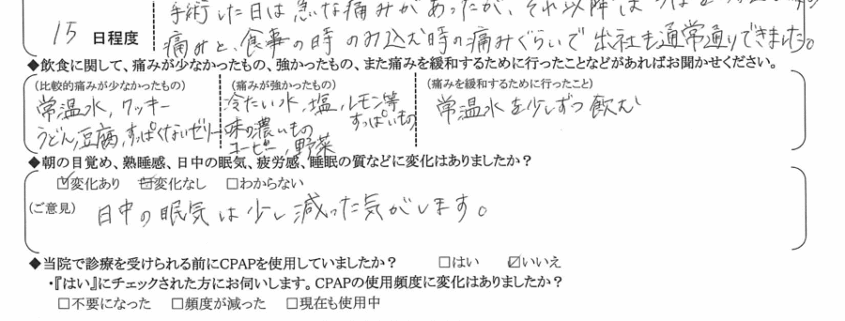 手術した日は急な痛みがあったが、それ以降は
15 日程度
痛みと、食事の時のみ込む時の痛みぐらいで出社も通常通りできました。
◆飲食に関して、痛みが少なかったもの、強かったもの、また痛みを緩和するために行ったことなどがあればお聞かせください。
(比較的痛みが少なかったもの)
常温水、クッキー
うどん、豆腐、すっぱくないゼリー
(痛みが強かったもの)
冷たい水、塩、レモン等
すっぱいもの
味の濃いもの
コーヒー、野菜
(痛みを緩和するために行ったこと)
常温水を少しずつ飲む
◆朝の目覚め、熟睡感、日中の眠気、疲労感、睡眠の質などに変化はありましたか?
☑変化あり □変化なし □わからない
(ご意見) 日中の眠気は少し減った気がします。
◆当院で診療を受けられる前にCPAPを使用していましたか? □はい ☑いいえ
・『はい』にチェックされた方にお伺いします。CPAPの使用頻度に変化はありましたか?
□不要になった □頻度が減った □現在も使用中